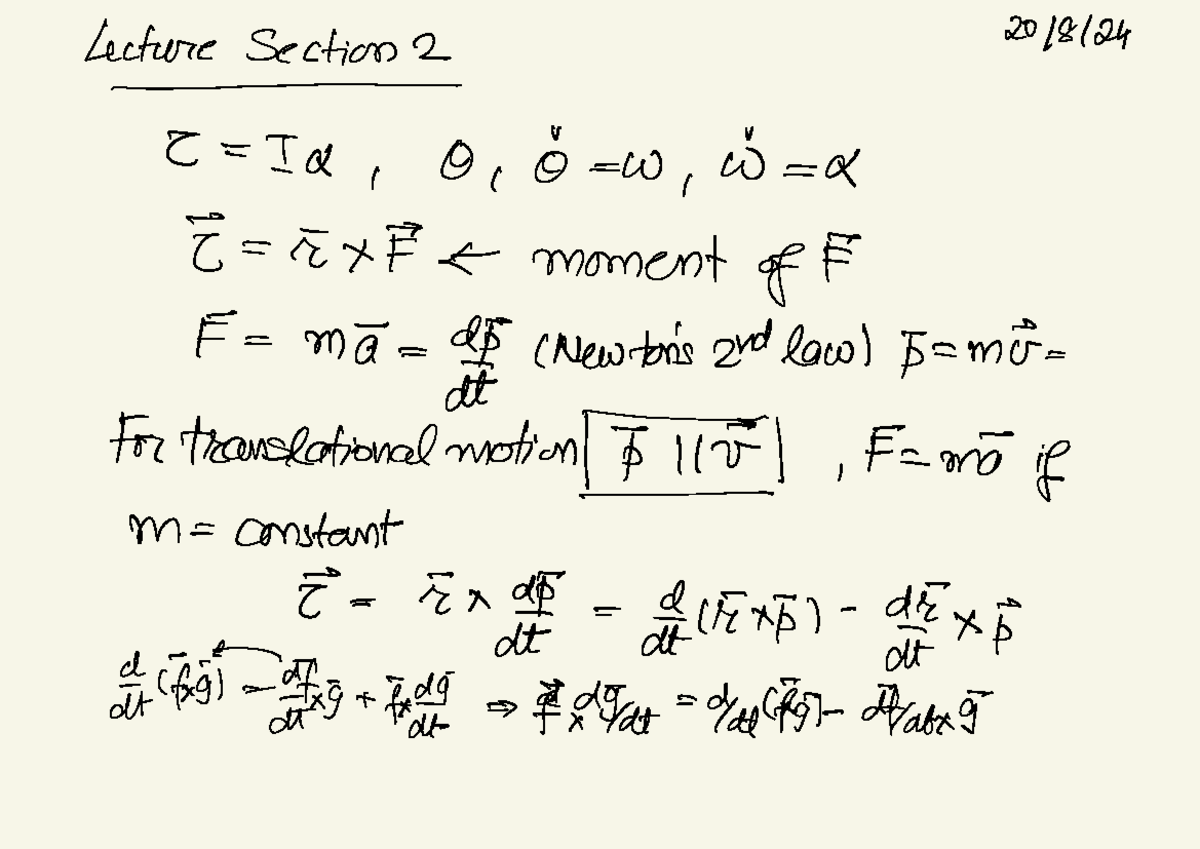 Lecture Section 2
20/8/24
τ = Iα, θ, θ̇ = ω, ω̇ = α
τ⃗ = r̄ × F⃗ ← moment of F̄
F̄ = m ā = dp̄/dt (Newton's 2nd law) p̄ = m v⃗ =
For translational motion p̄ || v⃗, F̄ = m ā if
m = constant
τ⃗ = r̄ × dp̄/dt = d/dt (r̄ × p̄) - dr̄/dt × p⃗
d/dt (f̄×ḡ) = df̄/dt × ḡ + f̄ × dḡ/dt ⇒ f̄ × dḡ/dt = d/dt (f̄×ḡ) - df̄/dt × ḡ